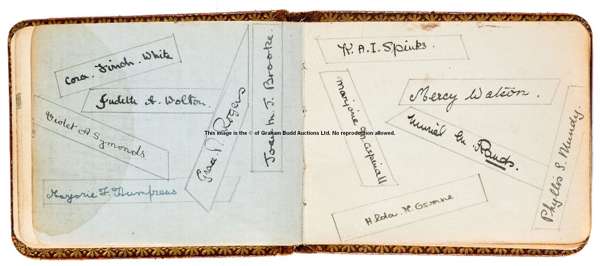 Cora. Finch. White
Judith A. Wolton.
Violet A Symonds
Marjorie F. Humpreas
P. Rogers
J. Brooke.
This image is the © of Graham Budd Auctions Ltd. No reproduction allowed.
K. A. I. Spinks.
Marjorie M. Aspinall
Mercy Watson.
Muriel
Hilda. K. Osmne
Phyllis S. Mundy.